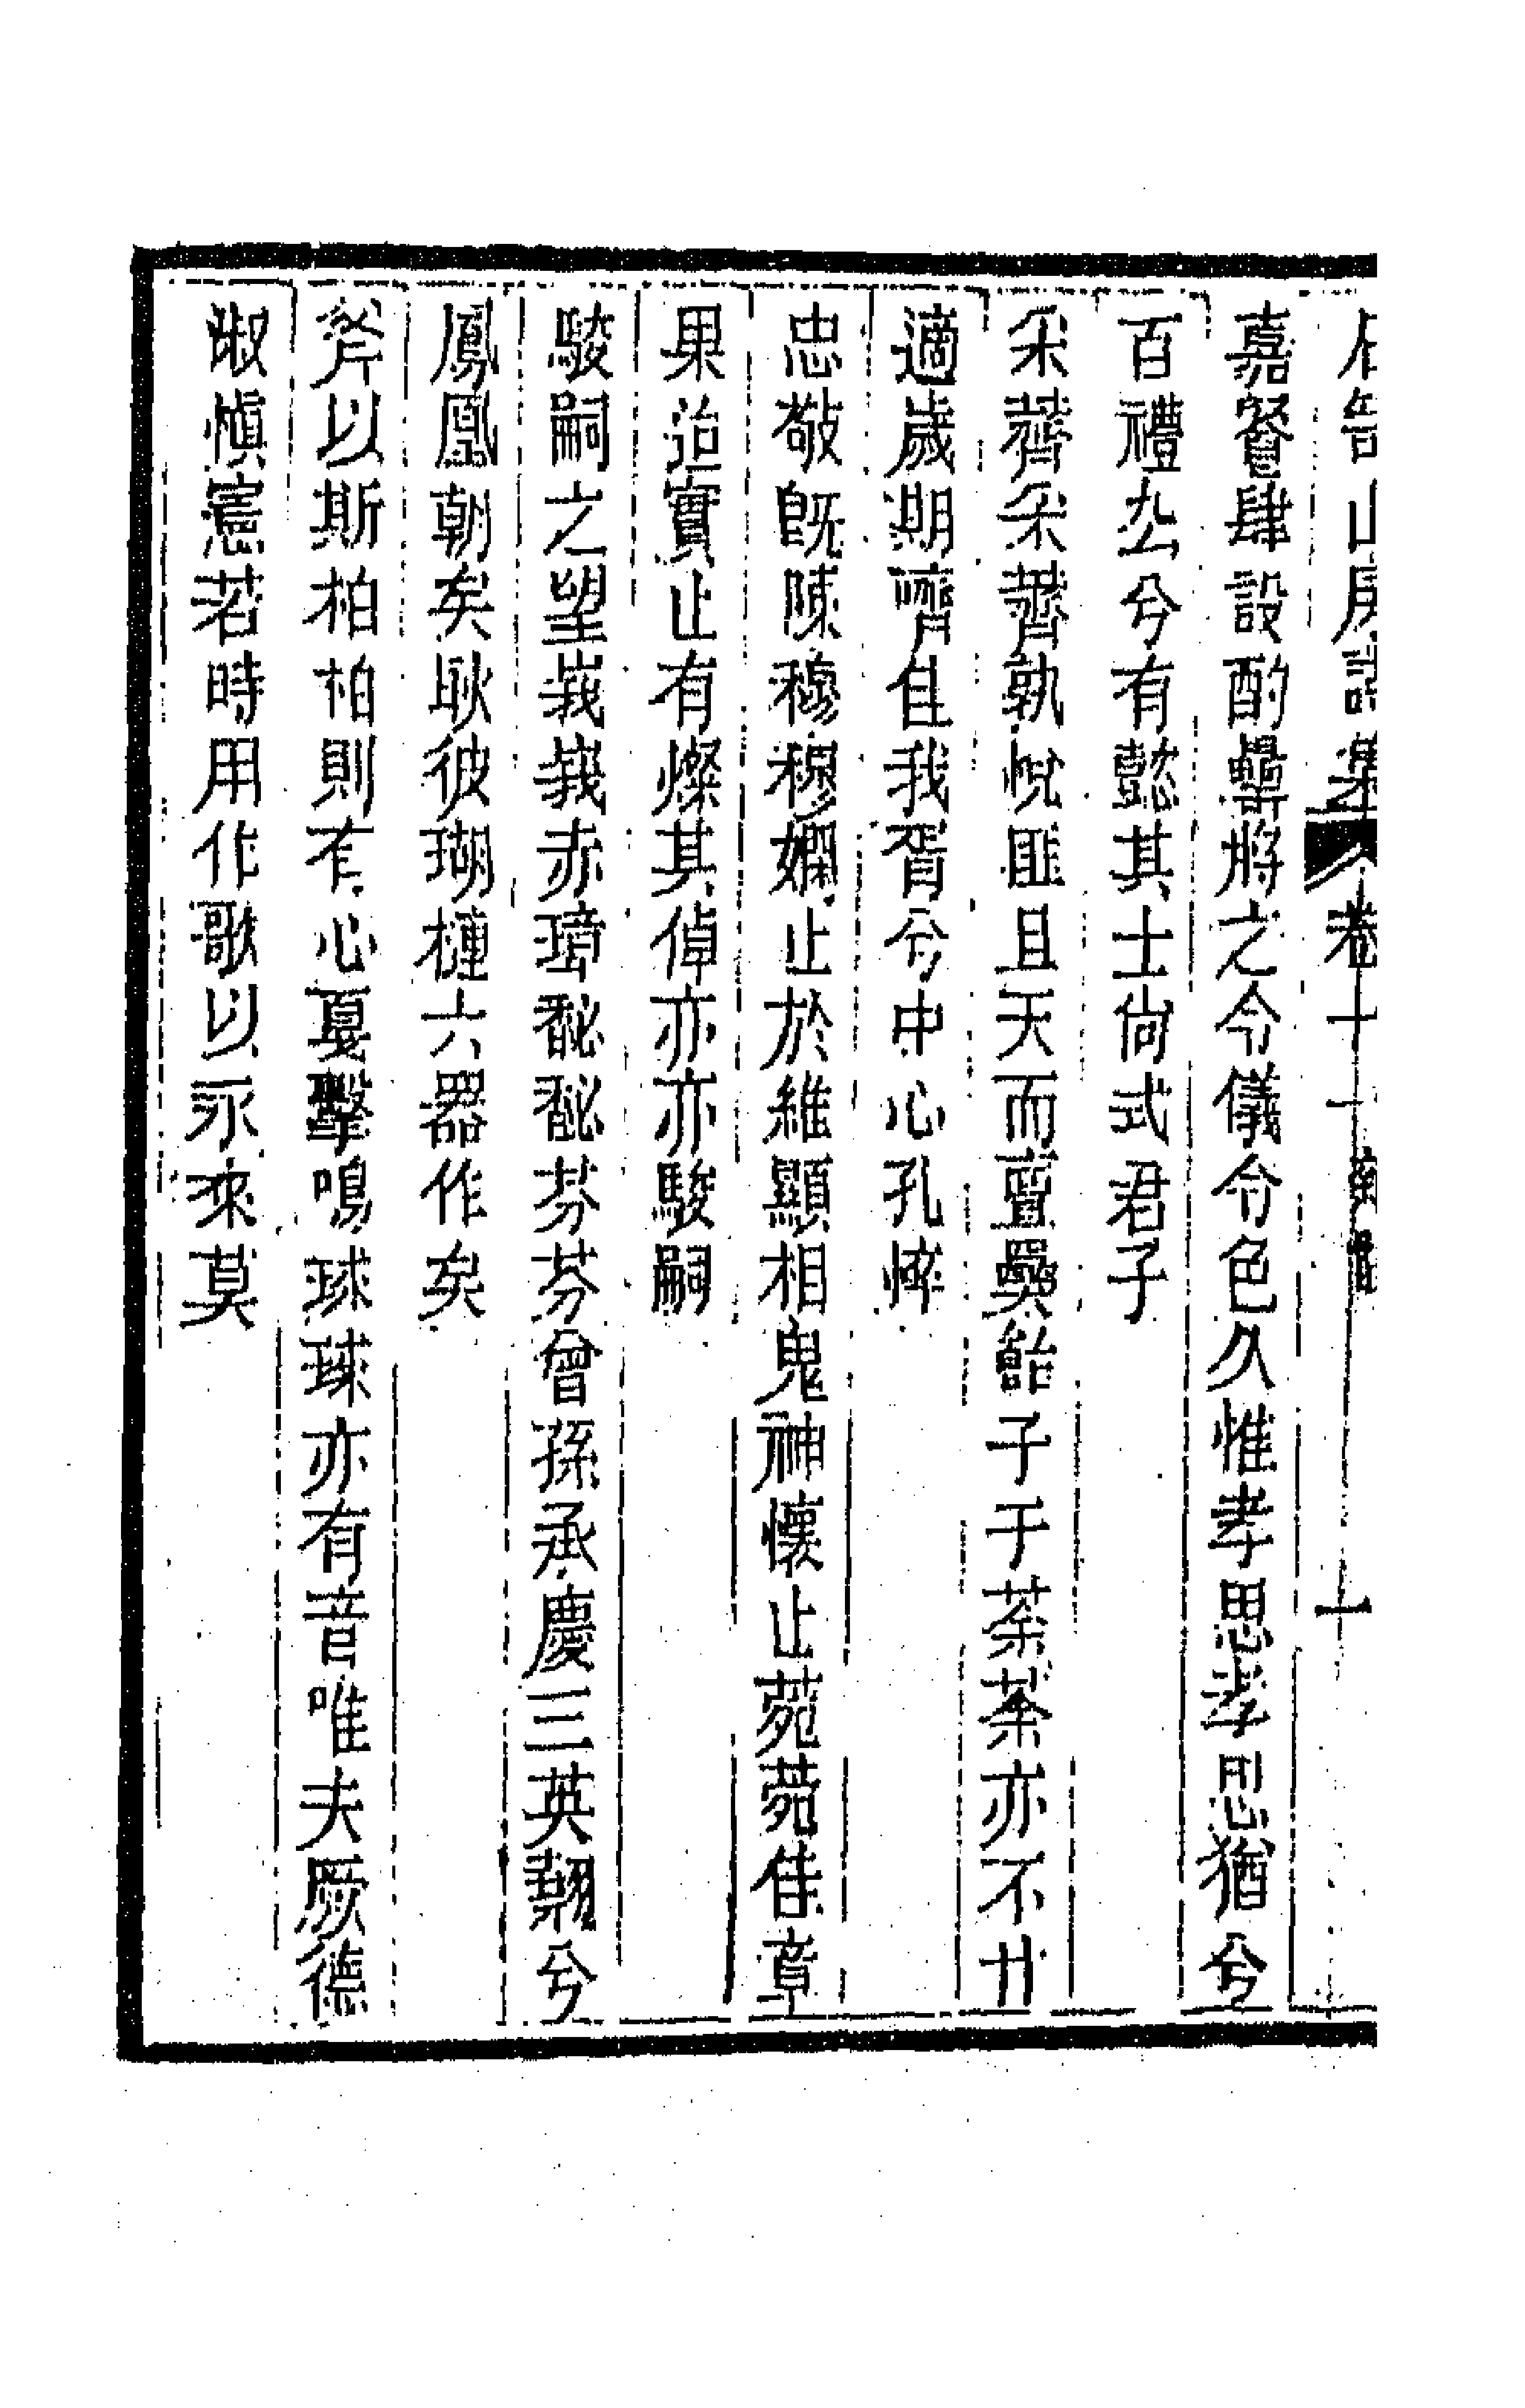 卷十一 十
嘉餐肆設酌罍將之令儀令色久惟孝思孝思猶兮
百禮厺兮有懿其士尙式君子
采薺采薺孰悅匪且天而亶異飴子于荼荼亦不甘
適歲期嚌隹我胥兮中心孔悴
忠敬旣陳穆穆嫻止於維顯相鬼神懷止菀菀隹章
果迨實止有燦其倬亦亦駿嗣
駿嗣之望峩峩赤璋馝馝芬芬曾孫承慶三英翹兮
鳳凰朝矣耿彼瑚槤六器作矣
斧以斯柏柏則有心戛擊鳴球球亦有音唯夫厥德
淑愼憲若時用作歌以永來莫